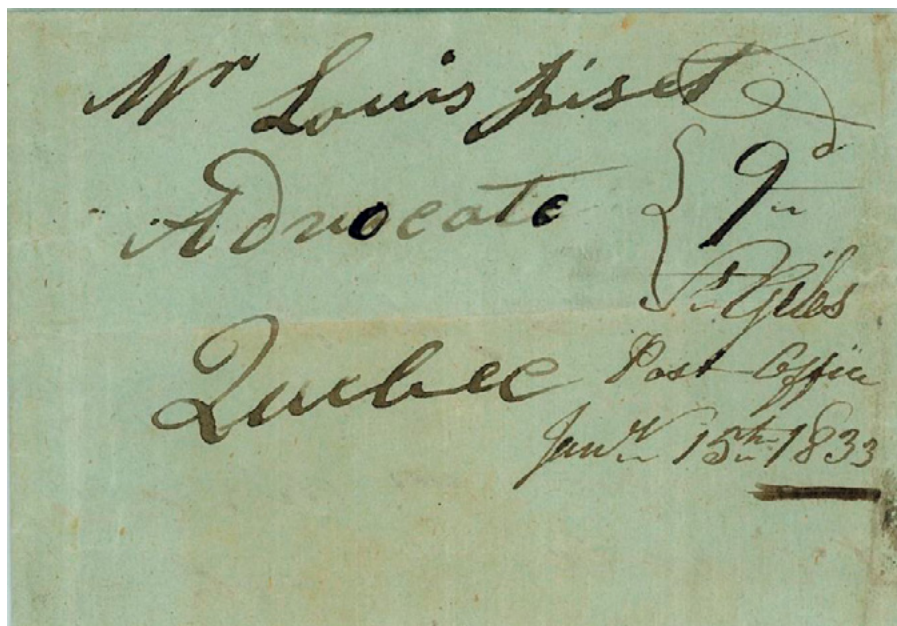 Mr Louis Fiset
Advocate
Quebec
9d
St Giles
Post Office
Jany 15th 1833